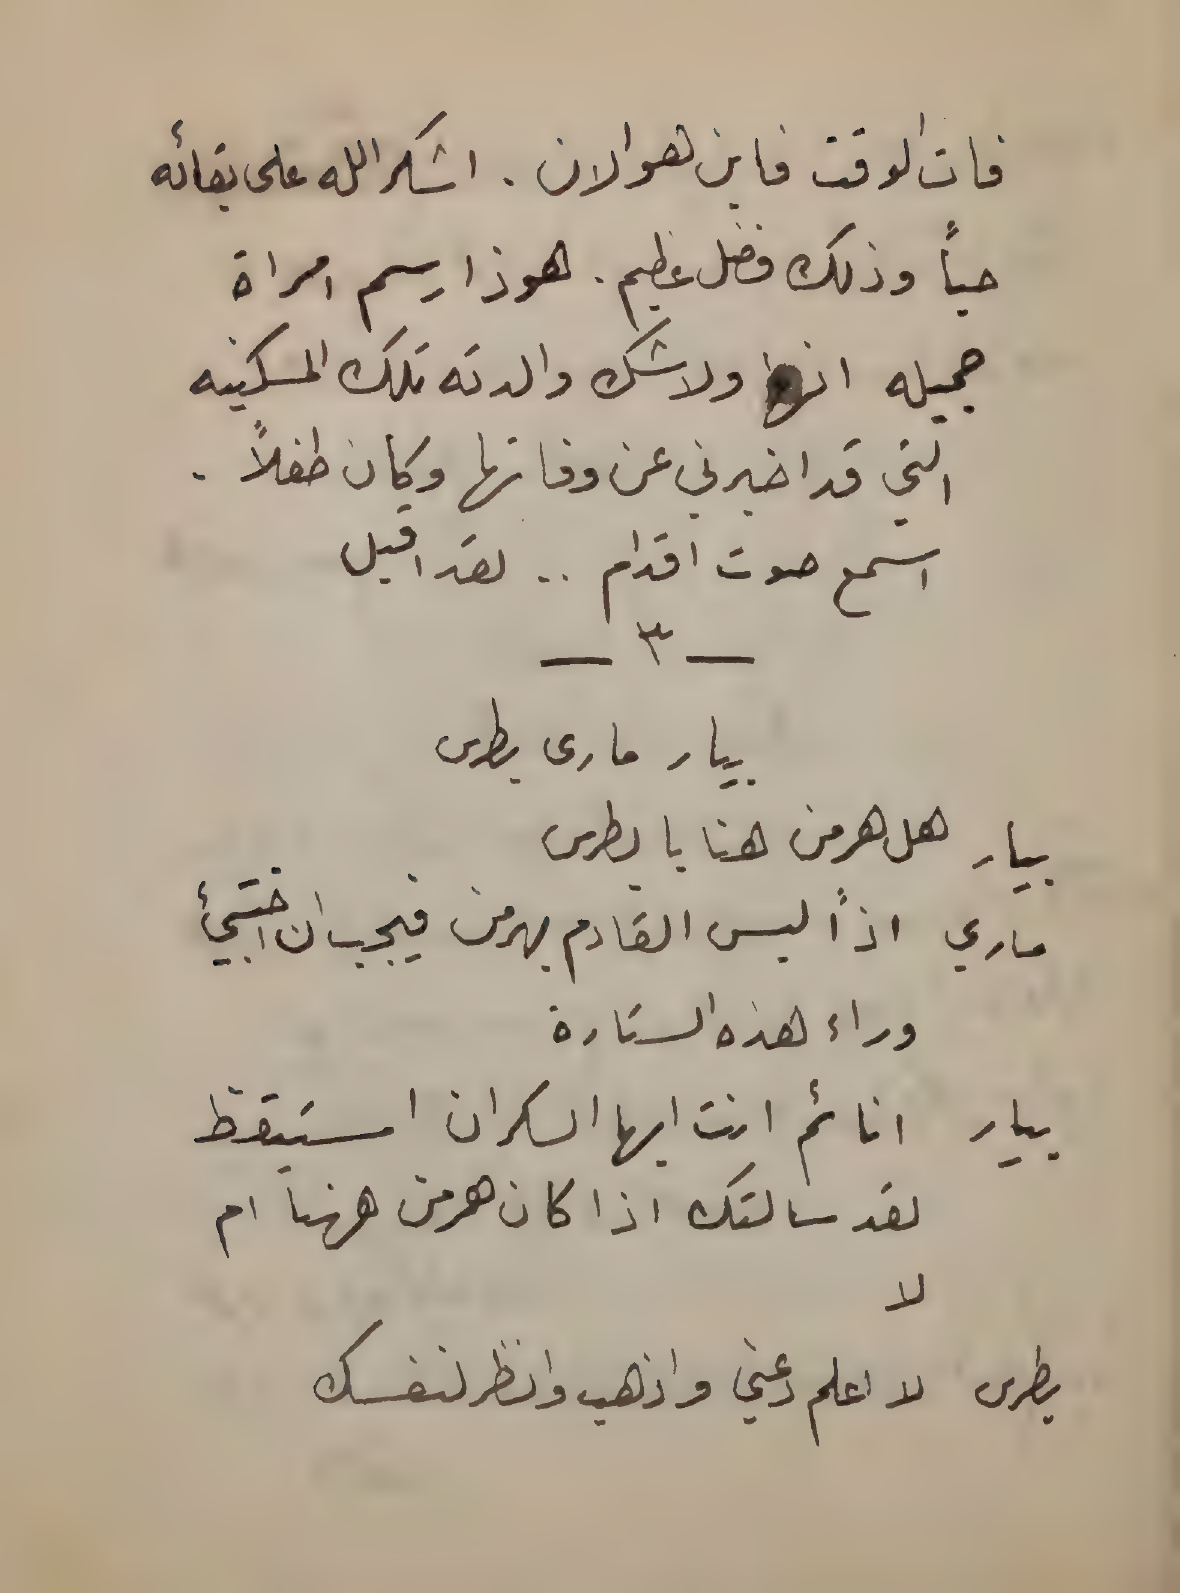 فات الوقت فاين هو الان . اشكر الله على بقائه
حياً وذلك فضل عظيم . هوذا رسم امراة
جميله انها ولاشك والدته تلك المسكينه
التي قد اخبرني عن وفاتها وكان طفلاً .
استمع صوت اقدام .. لقد اقبل
— ٣ —
بيار مارى بطرس
بيار هل هرمن هنا يا بطرس
ماري اذاً ليس القادم بهرمن فيجب ان اختبئ
وراء هذه الستارة
بيار انائم انت ايها السكران استيقظ
لقد سالتك اذا كان هرمن ههنا ام
لا
بطرس لا اعلم دعني واذهب وانظر لنفسك